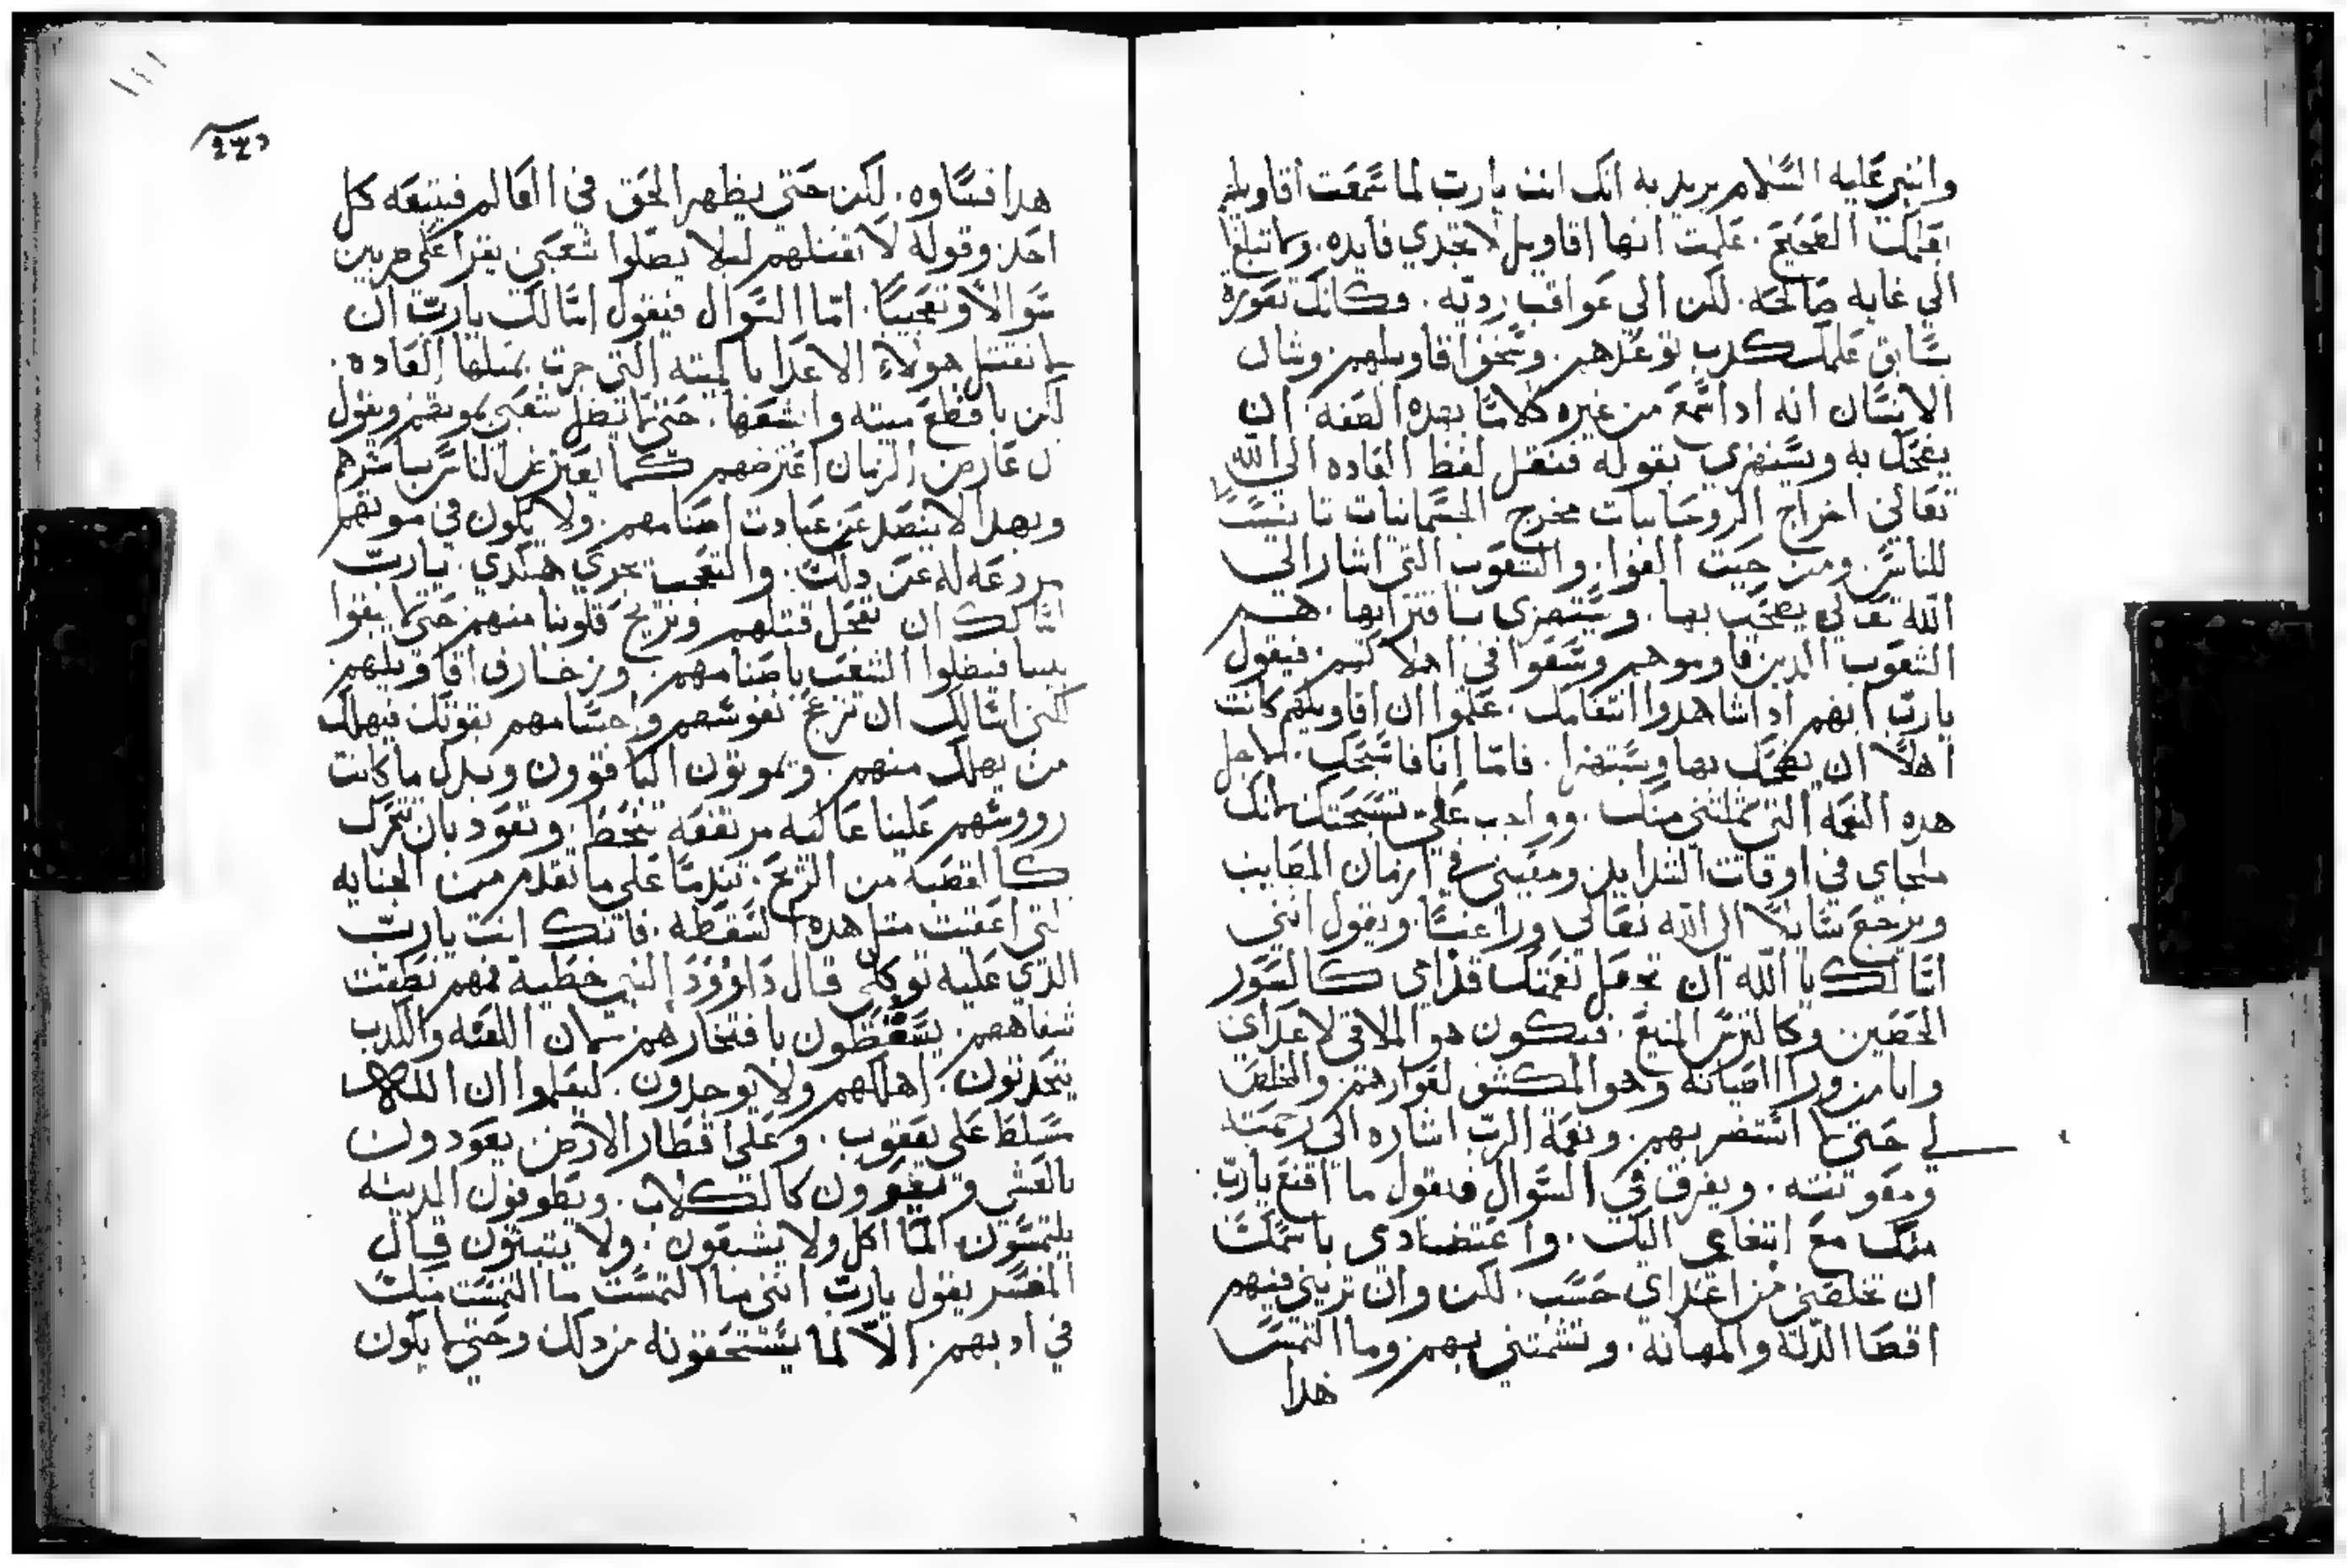 والنبي عليه السلام يريد به انك انت يارب لما سمعت اقاويلهم
بعلمك الصحيح. علمت انها اقاويل لا تجدي فايده. ولا تبلغ
الي غايه صالحه. لكن الي عواقب رديه. وكانك تعوره
سابق علمك كدب توعدهم. وسخف اقاويلهم. وشان
الانسان انه ادا سمع من غيره كلاما بهده الصفه ان
يضحك به ويستهزي بقوله فنقل لفظ العاده الي الله
تعالي اخراج الروحانيات مخرج الجسمانيات تانيسا
للناس. ومن حيت الفوا. والشعوب التي اشار الي
الله تعالي يضحك بها. ويستهزي بافترايها. هم
الشعوب الدين قاوموهم وسعوا في اهلاكهم. فيقول
يارب انهم ادا شاهدوا انتقامك. علموا ان اقاويلهم كانت
اهلا ان يضحك بها ويستهزا. فاما انا فاسبحك. لاجل
هده النعمه التي شملتني منك. وواجب علي تسبحتك لانك
ملجاي في اوقات الشدايد ومعيني في ازمان المصايب
ويرجع سايلا الي الله تعالي وراغبا ويقول انني
اسالك يا الله ان تجعل نعمتك قدامي كالسور
الحصين وكالترس المنيع. فيكون هو الملاقي لاعداي
وانا من ورا الصيانه وهو المكشف لعوارهم. والمخلص
لي حتي لا استضر بهم. ونعمة الرب اشاره الي رحمته
ومعونته. ويغرق في السوال فيقول ما اقنع يارب
منك مع ابتغاي اليك. واعتضادي باسمك
ان تخلصني من اعداي حسب. لكن وان تريني فيهم
اقصا الدله والمهانه. وتشمتني بهم وما التمست
هدا
هدا قساوه. لكن حتي يظهر الحق في العالم فيتبعه كل
احد وقوله لا تقتلهم ليلا يضلوا شعبي يقرا علي ضربين
سوالا وتعجيبا. اما السوال فيقول اسالك يارب ان
لا تقتل هولاء الاعدا بالميته التي جرت بمتلها العاده.
لكن بافظع ميته واشنعها. حتي لا يضل شعبي بموتهم ويقول
ان عارض الزمان اعترضهم كما يعترض الناس باسرهم
وبهدا لا ينصد عن عبادت اصنامهم. ولا يكون في موتهم
مردعه له عن دلك. والتعجب يجري هكدي. يارب
اسالك ان تعجل قتلهم وتريح قلوبنا منهم حتي لا يبقوا
بيننا فيضلوا الشعب باصنامهم. وزخارف اقاويلهم
لكني اسالك ان تزعج نفوسهم واجسامهم بقوتك فيهلك
من يهلك منهم. ويموتون الباقوون وبدل ما كانت
رووسهم علينا عاليه مرتفعه تنحط. وتعود بان تتحرك
كالقصبه من الريح. تندما علي ما تقدم من الجنايه
التي اعقبت متل هده السقطه. فانك انت يارب
الدي عليه توكلي قال داوود النبي خطية فمهم نطقت
شفاههم. يسقطون بافتخارهم لان اللعنه والكدب
يتحدتون. اهلكهم ولا يوجدون. ليعلموا ان الله
مسلط علي يعقوب. وعلي اقطار الارض يعودون
بالعشي ويعوون كالكلاب. ويطوفون المدينه
يلتمسون الماكل ولا يشبعون. ولا يتبيتون قال
المفسر يقول يارب انني ما التمست ما التمست منك
في ادبهم. الا لما يستحقونه من دلك وحتي لا يكون